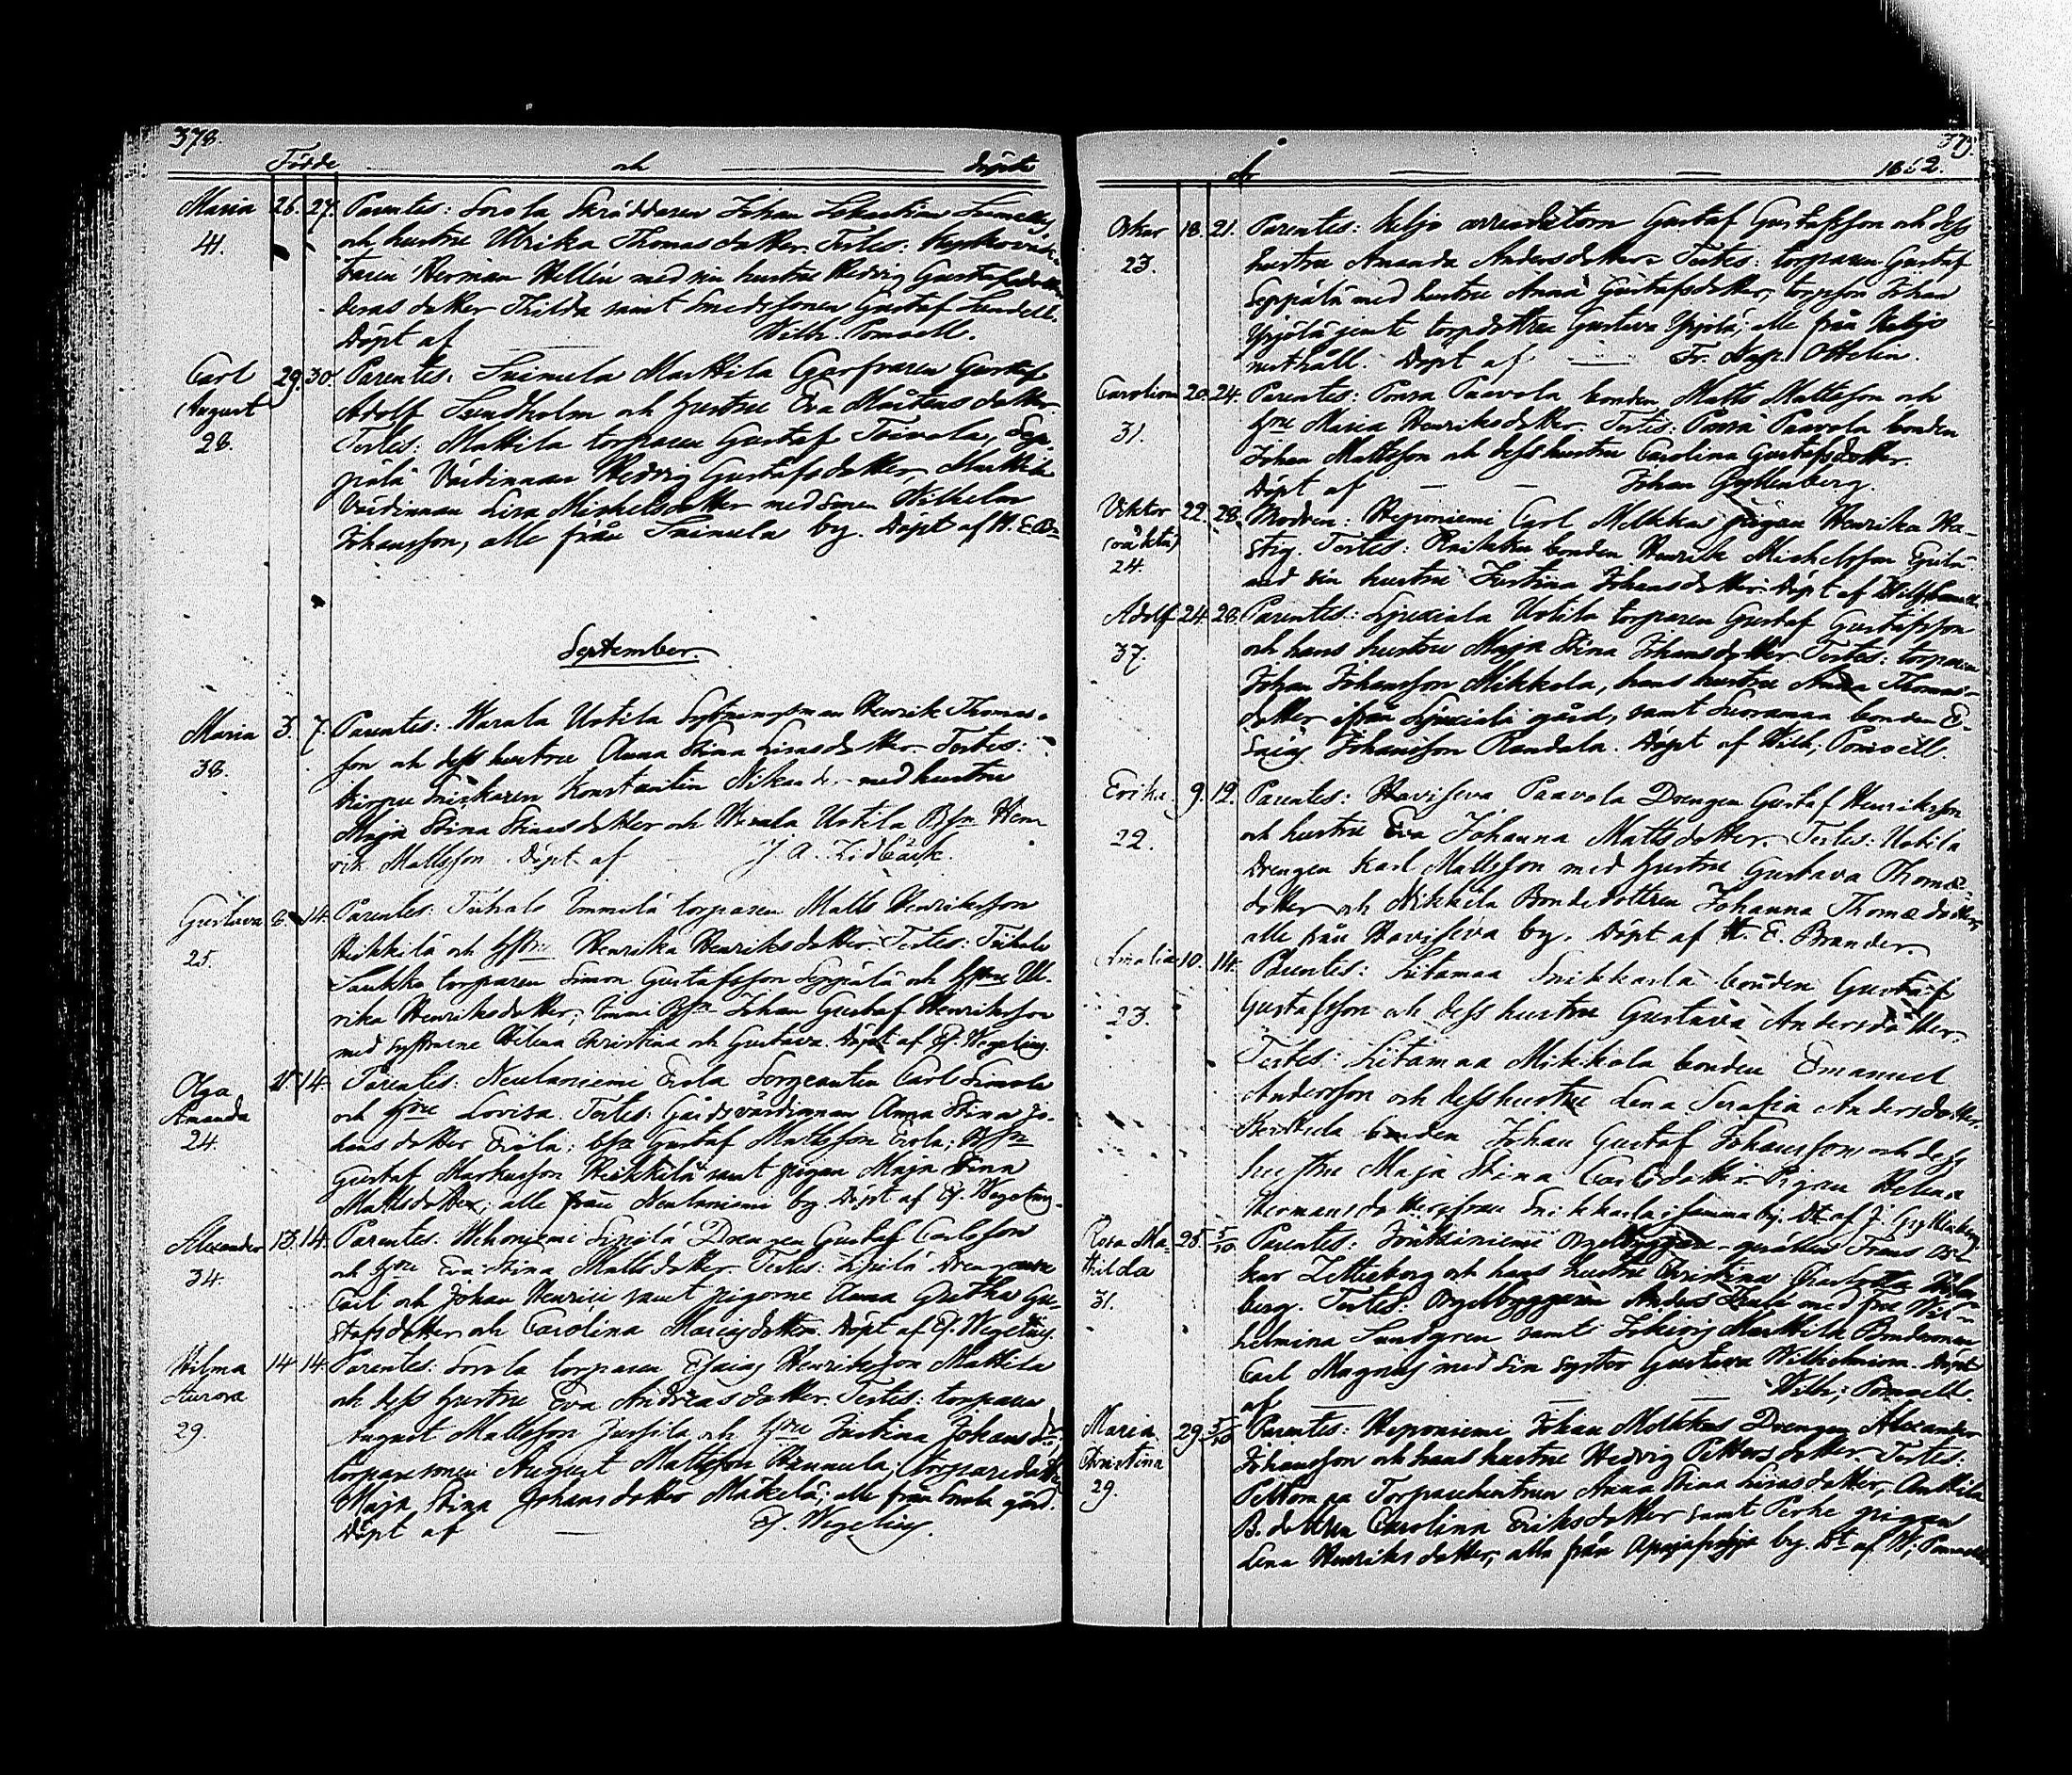 378.
Födde och döpte
Maria 26. 27. Parentes: Sorola Skräddaren Johan Sebastian
41. och hustru Ulrika Thomasdotter. Testes:
Herman Hellén med sin hustru Hedvig Gustafsdotter
deras dotter Thilda samt Smedssonen Gustaf Lundell.
Döpt af Wilh. Pomoell.
Carl 29. 30. Parentes: Suimula Marttila Garfvaren Gustaf
August Adolf Lundholm och hustru Eva Mårtensdotter.
28. Testes: Mattila torparen Gustaf Toivola, Sep-
pälä Värdinnan Hedvig Gustafsdotter, Marttila
Värdinnan Lisa Michelsdotter med sonen Wilhelm
Johansson, alle från Suimula by. Döpt af
September.
Maria 3. 7. Parentes: Warala Uotila Sytningsman Henrik Thomas-
38. son och dess hustru Anna Stina Lisasdotter. Testes:
Snickaren Konstantin Nikander med hustru
Maja Stina och Warala Uotila Bsn Hen-
rik Mattsson. Döpt af J. A. Lidbäck.
Gustava 8. 14. Parentes: Tuhala torparen Matts Henriksson
25. Heikkilä och Hstru Henrika Henriksdotter. Testes:
torparen Simon Gustafsson Seppälä och Hstru Ul-
rika Henriksdotter; Bsn Johan Gustaf Henriksson
med systrarne Helena Christina och Gustava. Döpt af Ef. Wegelius.
Olga 14. Parentes: Neulaniemi Erola Sergeanten Carl
Amanda och Hstru Lovisa. Testes: Gårdsvärdinnan Anna Stina Jo-
24. hansdotter Erola; bsn Gustaf Mattsson Erola; Bsn
Gustaf Markusson Heikkilä samt pigan Maja Stina
Mattsdotter; alle från Neulaniemi by. Döpt af Ef. Wegelius.
Alexander 13. 14. Parentes: Drengen Gustaf Carlsson
34. och Hstru Eva Stina Mattsdotter. Testes: Drengarne
Carl och Johan Henric samt pigorne Anna Gretha Gu-
stafsdotter och Carolina Döpt af Ef. Wegelius.
Wilma 14 14. Parentes: Sorola torparen Esaias Henriksson Mattila
Aurora och dess hustru Eva Andreasdotter. Testes: torparen
29. August Mattsson Jussila och Hstru Justina Johansd:r,
torparesonen August Mattsson Hannula, torparedottren
Maja Stina Johansdotter Mäkelä; alle från gård.
Döpt af Ef. Wegelius.
379.
År 1862.
Oskar 18. 21. Parentes: Keljo arrendatorn Gustaf Gustafsson och dess
23. hustru Amanda Andersdotter. Testes: torparen Gustaf
Seppälä med hustru Anna Gustafsdotter, torpson Johan
Yrjölä jemte torpdottren Gustava Yrjölä; alle från Keljo
rusthåll. Döpt af Fr. Aug. Ottelin.
Carolina 20. 24. Parentes: Ponsa Paavola bonden Matts Mattsson och
31. Hstru Maria Henriksdotter. Testes: Ponsa Paavola bonden
Johan Mattsson och dess hustru Carolina Gustafsdotter.
Döpt af Johan Gyllenberg.
Viktor 22. 28. Modren: Heponiemi Carl Melkkas pigan Henrika Ha-
(oäkta) stig. Testes: bonden Henrik Michelsson
24. med sin hustru Justina Johansdotter. Döpt af
Adolf 24. 28. Parentes: Liuksiala Uotila torparen Gustaf Gustafsson
37. och hans hustru Maja Stina Johansdotter. Testes: torparen
Johan Johansson Mikkola, hans hustru Anna Thomas-
dotter ifrån Liuksiala gård, samt Suoramaa bonden E-
saias Johansson Randala. Döpt af Wilh: Pomoell.
Erika 9. 12. Parentes: Haviseva Paavola Drengen Gustaf Henriksson
22. och hustru Eva Johanna Mattsdotter. Testes: Uotila
Drengen Karl Mattsson med hustru Gustava Thomæ-
dotter och Mikkola Bondedottren Johanna Thomædotter,
alle från Havisева by. Döpt af W. E. Brander.
Amalia 10. 14. Parentes: Liitamaa Snikkarla bonden Gustaf
23. Gustafsson och dess hustru Gustava Andersdotter.
Testes: Liitamaa Mikkola bonden Emanuel
Andersson och dess hustru Lena Serafia Andersdotter.
bonden Johan Gustaf Johansson och dess
hustru Maja Stina Carlsdotter. Pigan Helena
Hermansdotter ifrån Snikkarla i samma by. Dt af J. Gyllenberg.
Rosa Ma- 25. 5/10 Parentes: Frans Os-
thilda kar Zetterborg och hans hustru Christina Charlotta
31. berg. Testes: Orgelbyggaren Anders Thulé med fru Wil-
helmina Lundgren samt Marttila Bondesonen
Carl Magnus med sin syster Gustava Wilhelmina. Döpt
af Wilh; Pomoell.
Maria 29. 5/10 Parentes: Heponiemi Johan Molkkas Drengen Alexander
Christina Johansson och hans hustru Hedvig Pettersdotter. Testes:
29. Torparehustrun Anna Stina Lisasdotter, Anttila
B.dottren Carolina Eriksdotter samt Perhe pigan
Lena Henriksdotter, alla från by. Dt af W; Pomoell.